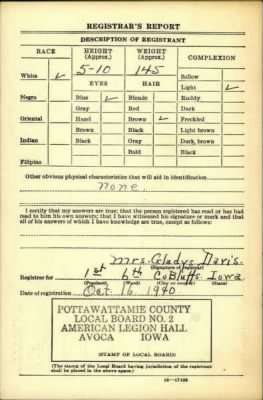 REGISTRAR'S REPORT
DESCRIPTION OF REGISTRANT
RACE HEIGHT (Approx.) WEIGHT (Approx.) COMPLEXION
White ✓ 5-10 145 Sallow
EYES HAIR Light ✓
Negro Blue ✓ Blonde Ruddy
Gray Red Dark
Oriental Hazel Brown ✓ Freckled
Brown Black Light brown
Indian Black Gray Dark brown
Bald Black
Filipino
Other obvious physical characteristics that will aid in identification
None.
I certify that my answers are true; that the person registered has read or has had
read to him his own answers; that I have witnessed his signature or mark and that
all of his answers of which I have knowledge are true, except as follows:
Mrs. Gladys Davis.
(Signature of registrar)
Registrar for 1st 6th Co Bluffs Iowa
(Precinct) (Ward) (City or county) (State)
Date of registration Oct 16 1940
POTTAWATTAMIE COUNTY
LOCAL BOARD NO. 2
AMERICAN LEGION HALL
AVOCA IOWA
(STAMP OF LOCAL BOARD)
(The stamp of the Local Board having jurisdiction of the registrant
shall be placed in the above space.)